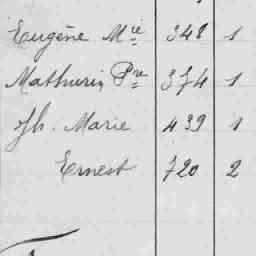 Eugène Mie 348 1
Mathurin Pre 374 1
Jh. Marie 439 1
Ernest 720 2